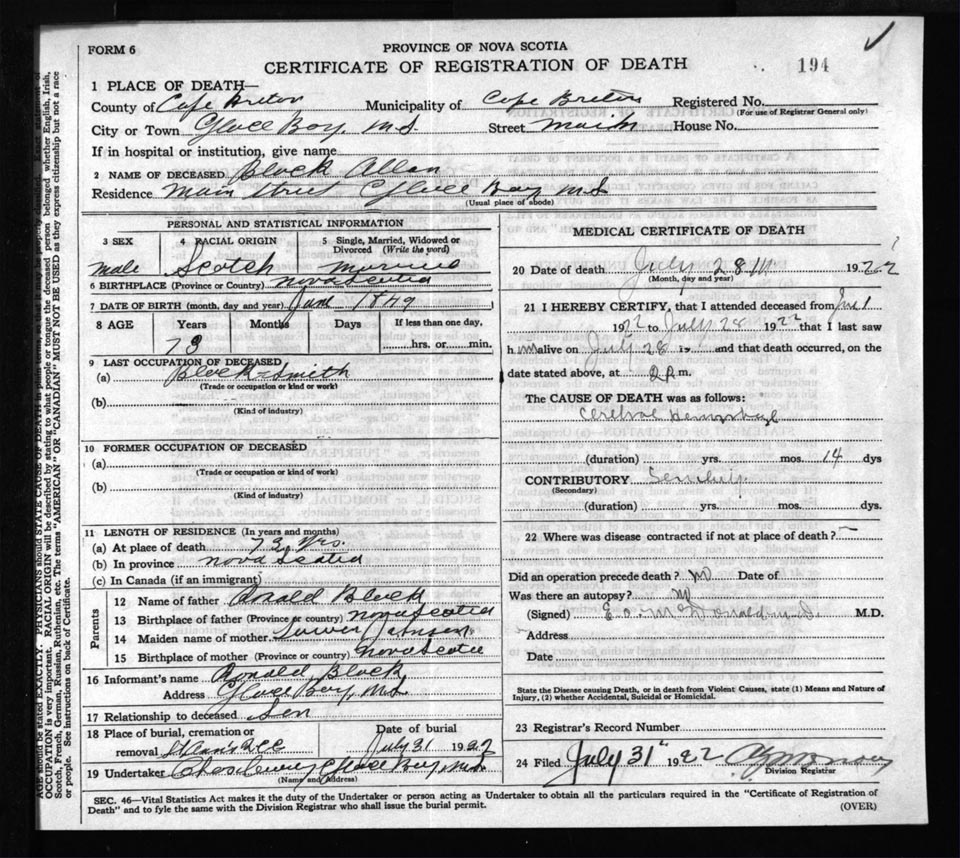 FORM 6
PROVINCE OF NOVA SCOTIA
CERTIFICATE OF REGISTRATION OF DEATH
194
1 PLACE OF DEATH—
County of Cape Breton Municipality of Cape Breton Registered No.
(For use of Registrar General only)
City or Town Glace Bay, N.S. Street Main House No.
If in hospital or institution, give name
2 NAME OF DECEASED Black Allan
Residence Main Street Glace Bay N.S.
(Usual place of abode)
PERSONAL AND STATISTICAL INFORMATION
3 SEX 4 RACIAL ORIGIN 5 Single, Married, Widowed or Divorced (Write the word)
Male Scotch Married
6 BIRTHPLACE (Province or Country) Nova Scotia
7 DATE OF BIRTH (month, day and year) June 1849
8 AGE Years Months Days If less than one day,
73 hrs. or min.
9 LAST OCCUPATION OF DECEASED
(a) Blacksmith
(Trade or occupation or kind or work)
(b)
(Kind of industry)
10 FORMER OCCUPATION OF DECEASED
(a)
(Trade or occupation or kind of work)
(b)
(Kind of industry)
11 LENGTH OF RESIDENCE (In years and months)
(a) At place of death 73 Yrs.
(b) In province Nova Scotia
(c) In Canada (if an immigrant)
Parents
12 Name of father Ronald Black
13 Birthplace of father (Province or country) Nova Scotia
14 Maiden name of mother
15 Birthplace of mother (Province or country) Nova Scotia
16 Informant's name Ronald Black
Address Glace Bay, N.S.
17 Relationship to deceased Son
18 Place of burial, cremation or removal Date of burial
July 31 1922
19 Undertaker Glace Bay, N.S.
(Name and Address)
MEDICAL CERTIFICATE OF DEATH
20 Date of death July 28th 1922
(Month, day and year)
21 I HEREBY CERTIFY, that I attended deceased from
1922 to July 28 1922 that I last saw
h im alive on July 28 is and that death occurred, on the
date stated above, at 2 p m.
The CAUSE OF DEATH was as follows:
Cerebral Hemorrhage
(duration) yrs. mos. 14 dys
CONTRIBUTORY Senility
(Secondary)
(duration) yrs. mos. dys.
22 Where was disease contracted if not at place of death?
Did an operation precede death? no Date of
Was there an autopsy? no
(Signed) E. O. McDonald M.D. M.D.
Address
Date
State the Disease causing Death, or in death from Violent Causes, state (1) Means and Nature of
Injury, (2) whether Accidental, Suicidal or Homicidal.
23 Registrar's Record Number
24 Filed July 31st 1922
Division Registrar
SEC. 46—Vital Statistics Act makes it the duty of the Undertaker or person acting as Undertaker to obtain all the particulars required in the "Certificate of Registration of
Death" and to fyle the same with the Division Registrar who shall issue the burial permit.
(OVER)